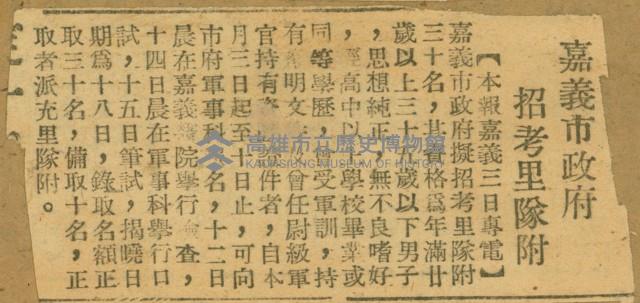 嘉義市政府
招考里隊附
【本報嘉義三日專電】
嘉義市政府擬招考里隊附
三十名，其資格為年滿廿
歲以上三十歲以下男子
，思想純正，無不良嗜好
，經高中以上學校畢業或
同等學歷，受軍訓，持
有證明文件，曾任尉級軍
官持有證件者，自本
月三日起至日止，可向
市府軍事科報名，十二日
晨在嘉義醫院舉行檢查，
十四日晨在軍事科舉行口
試，十五日筆試，揭曉日
期為十八日，錄取名額正
取三十名，備取十名，正
取者派充里隊附。
高雄市立歷史博物館
KAOHSIUNG MUSEUM OF HISTORY